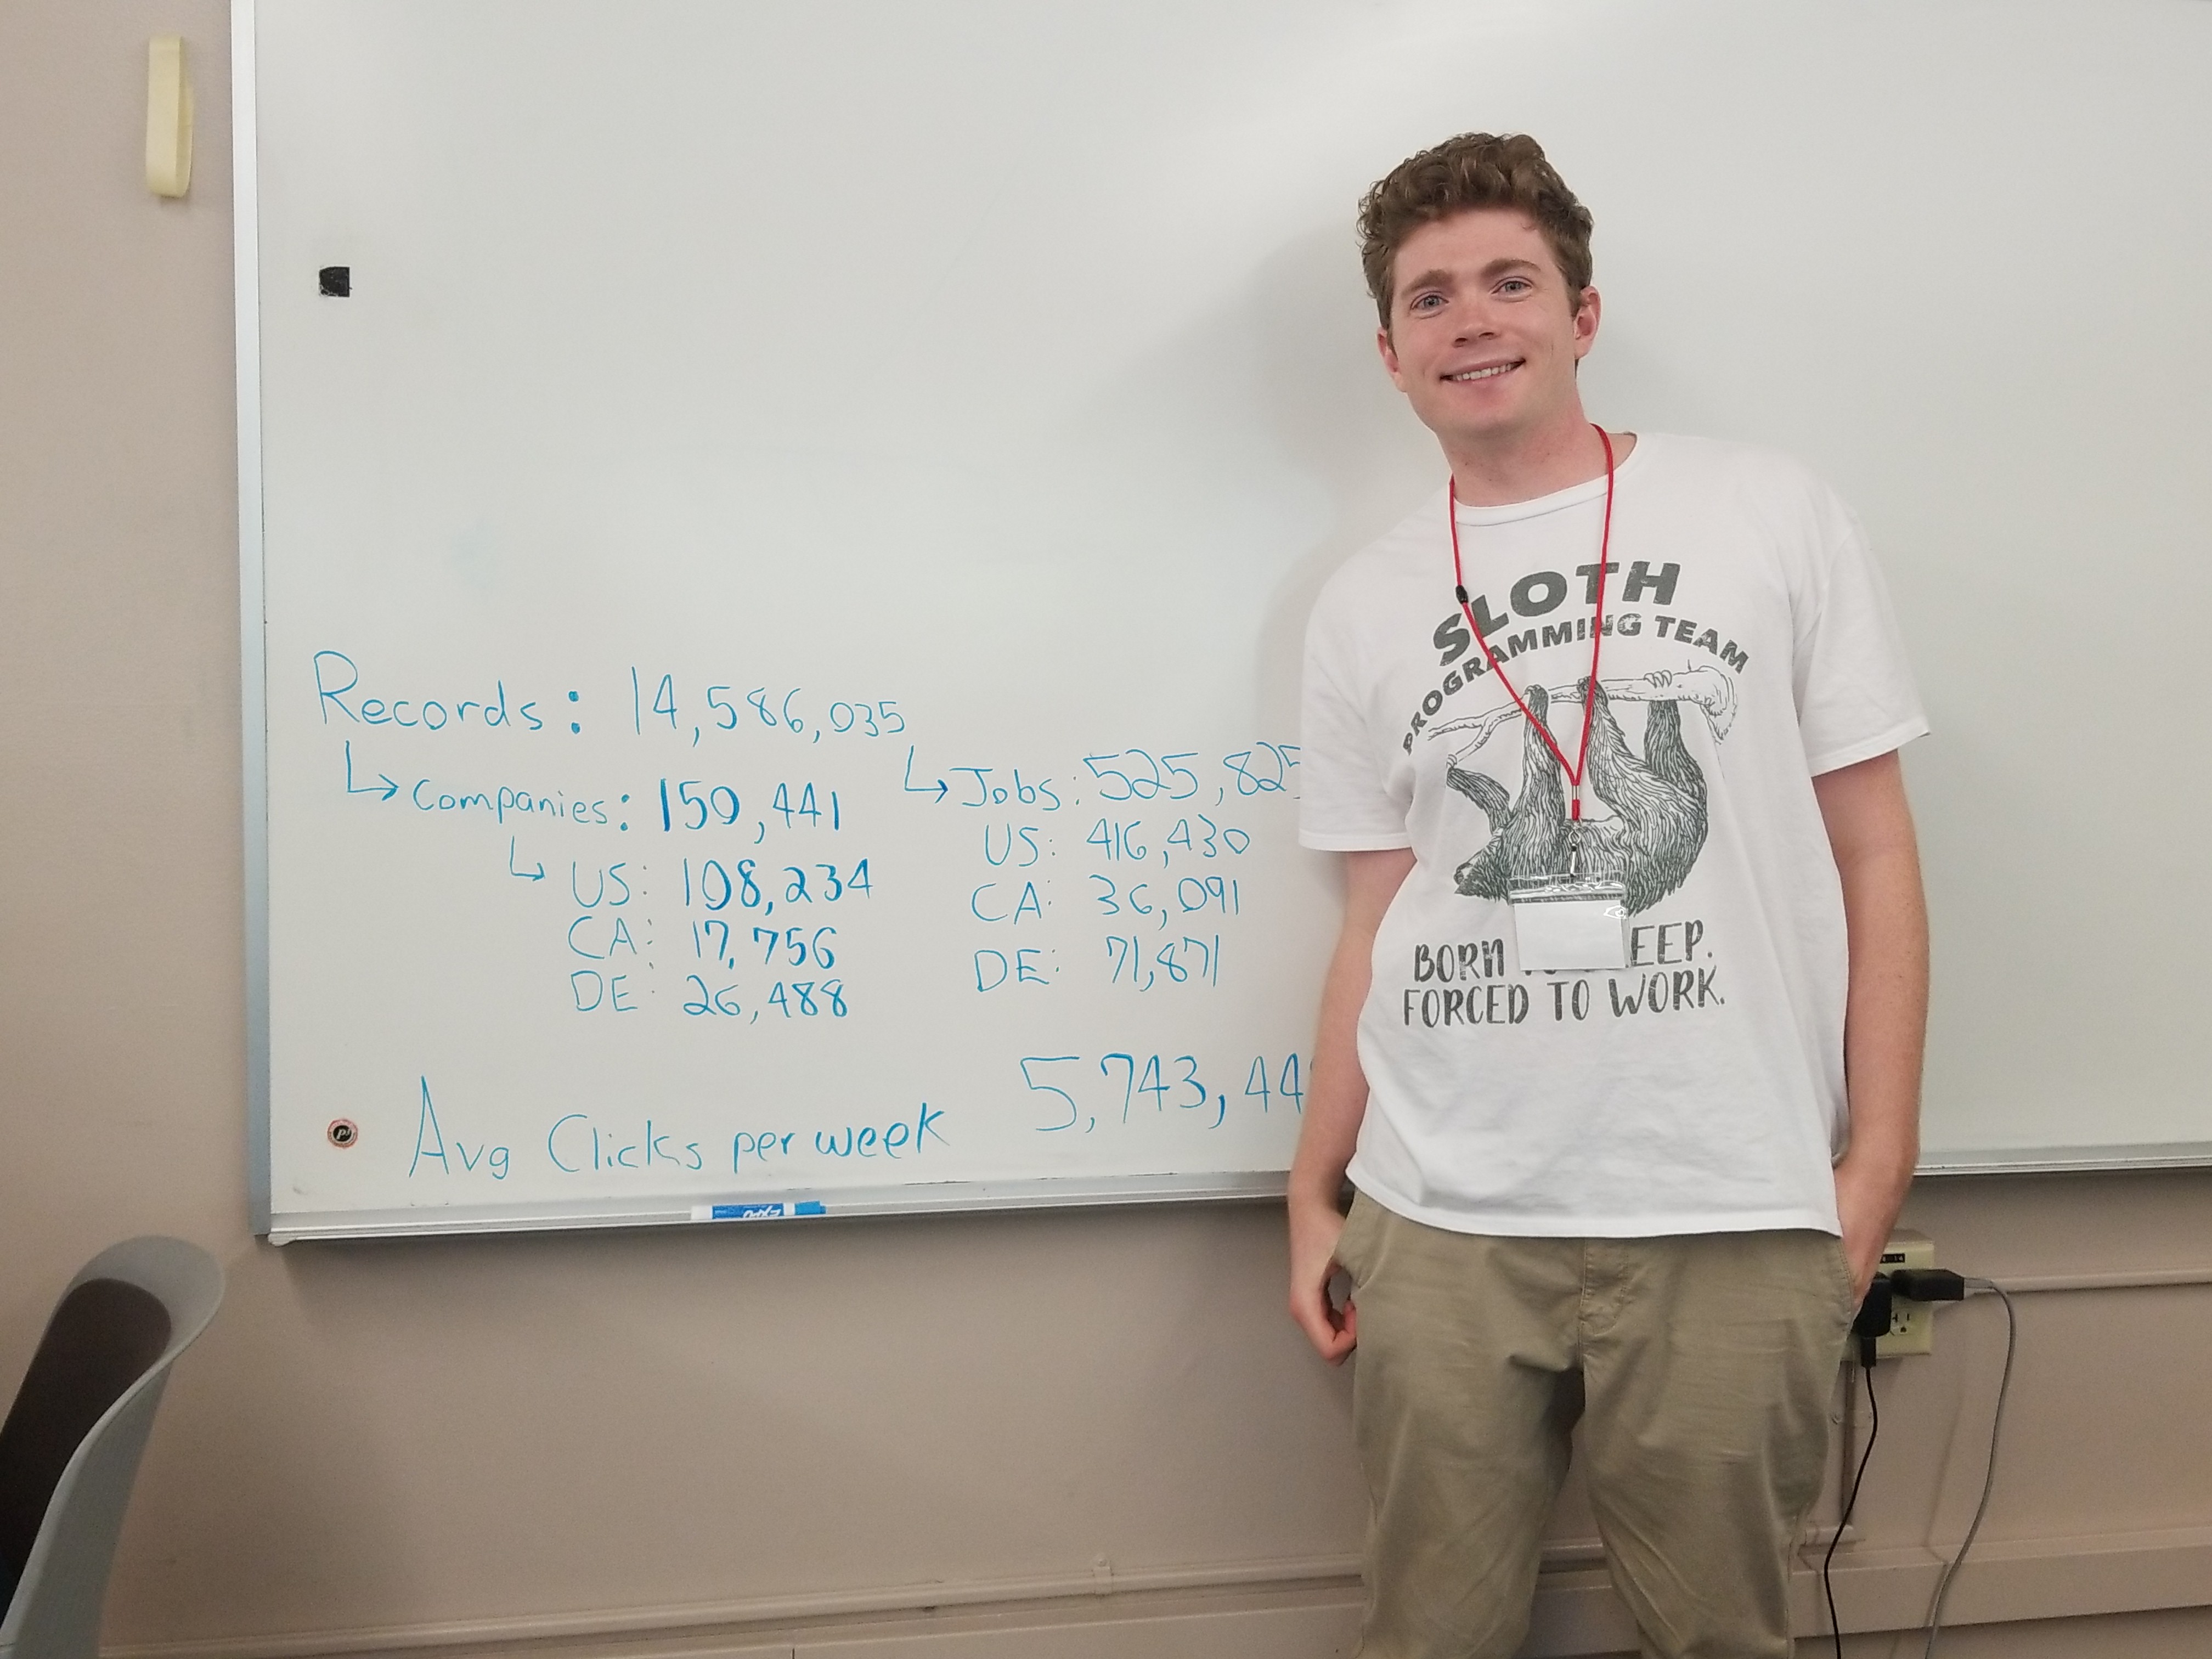 Records: 14,586,035
↳ Companies: 150,441
↳ US: 108,234
CA: 17,756
DE: 26,488
↳ Jobs: 525,825
US: 416,430
CA: 36,091
DE: 71,871
Avg Clicks per week 5,743,44
EXPO
SLOTH
PROGRAMMING TEAM
BORN EEP.
FORCED TO WORK.